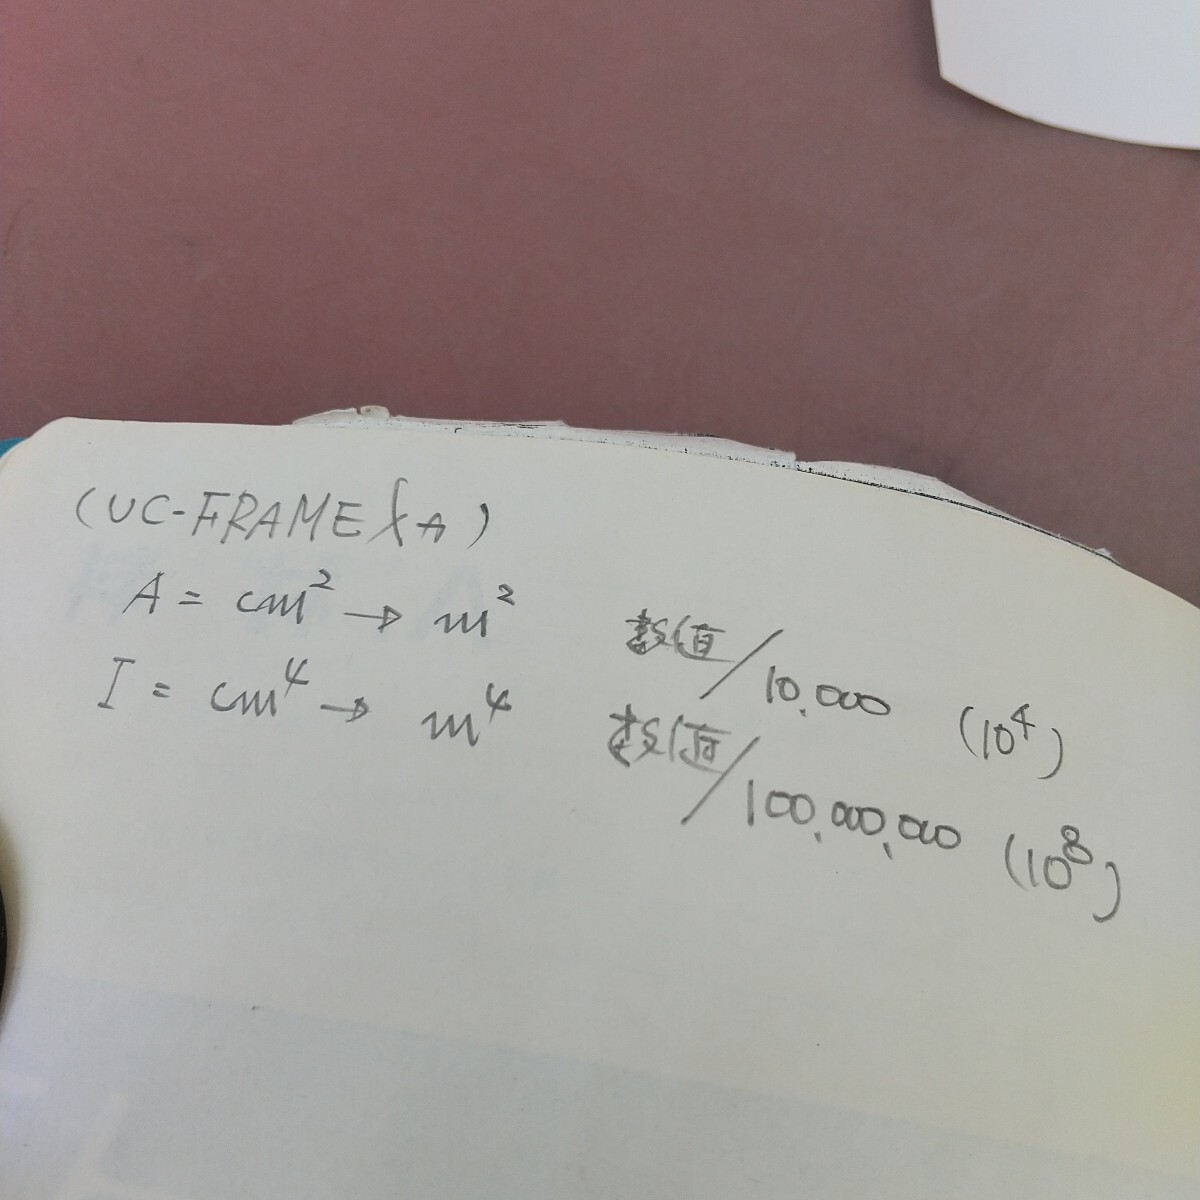 (UC-FRAME入力)
A = cm² → m² 数値/10,000 (10⁴)
I = cm⁴ → m⁴ 数値/100,000,000 (10⁸)